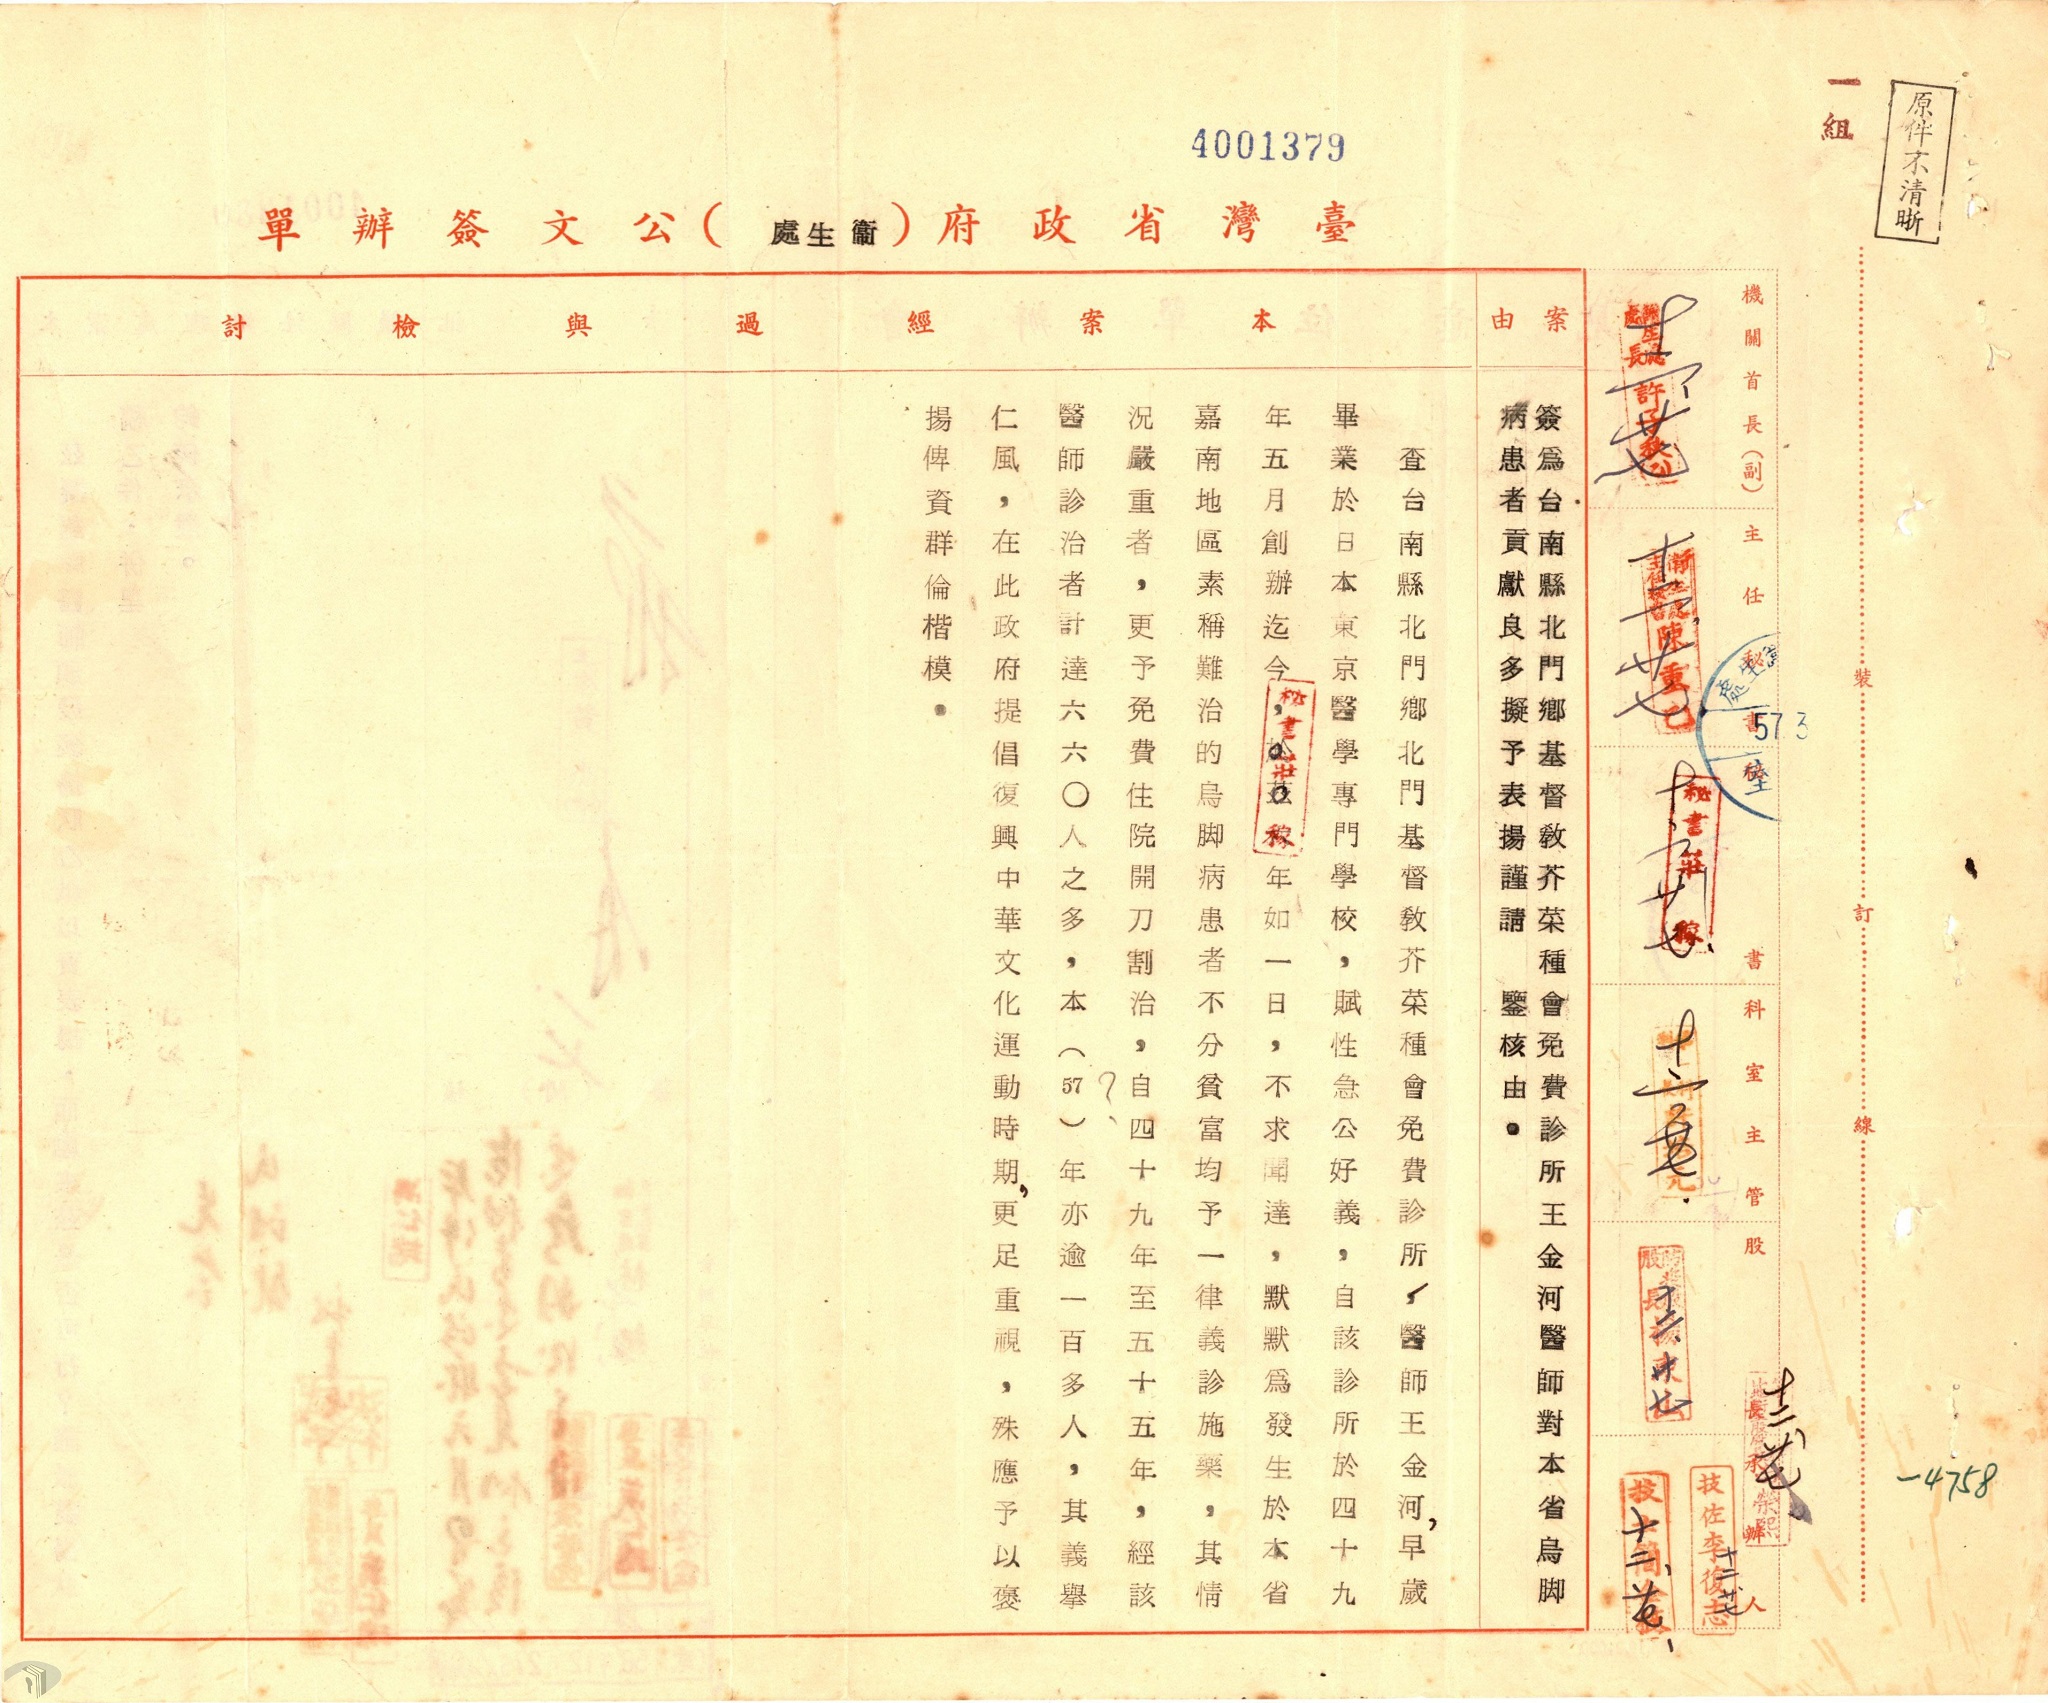 原件不清晰
一組
4001379
臺灣省政府（衞生處）公文簽辦單
裝訂線
機關首長（副）
主任秘書
秘書
科室主管
股長
承辦人
案由
簽爲台南縣北門鄉基督敎芥菜種會免費診所王金河醫師對本省烏脚
病患者貢獻良多擬予表揚謹請　鑒核由。
本案經過與檢討
查台南縣北門鄉北門基督敎芥菜種會免費診所，醫師王金河，早歲
畢業於日本東京醫學專門學校，賦性急公好義，自該診所於四十九
年五月創辦迄今，年如一日，不求聞達，默默爲發生於本省
嘉南地區素稱難治的烏脚病患者不分貧富均予一律義診施藥，其情
況嚴重者，更予免費住院開刀割治，自四十九年至五十五年，經該
醫師診治者計達六六〇人之多，本（57）年亦逾一百多人，其義擧
仁風，在此政府提倡復興中華文化運動時期，更足重視，殊應予以褒
揚俾資群倫楷模。
秘書莊稼
陳重己
秘書莊稼
技佐李復志
57 3
-4758